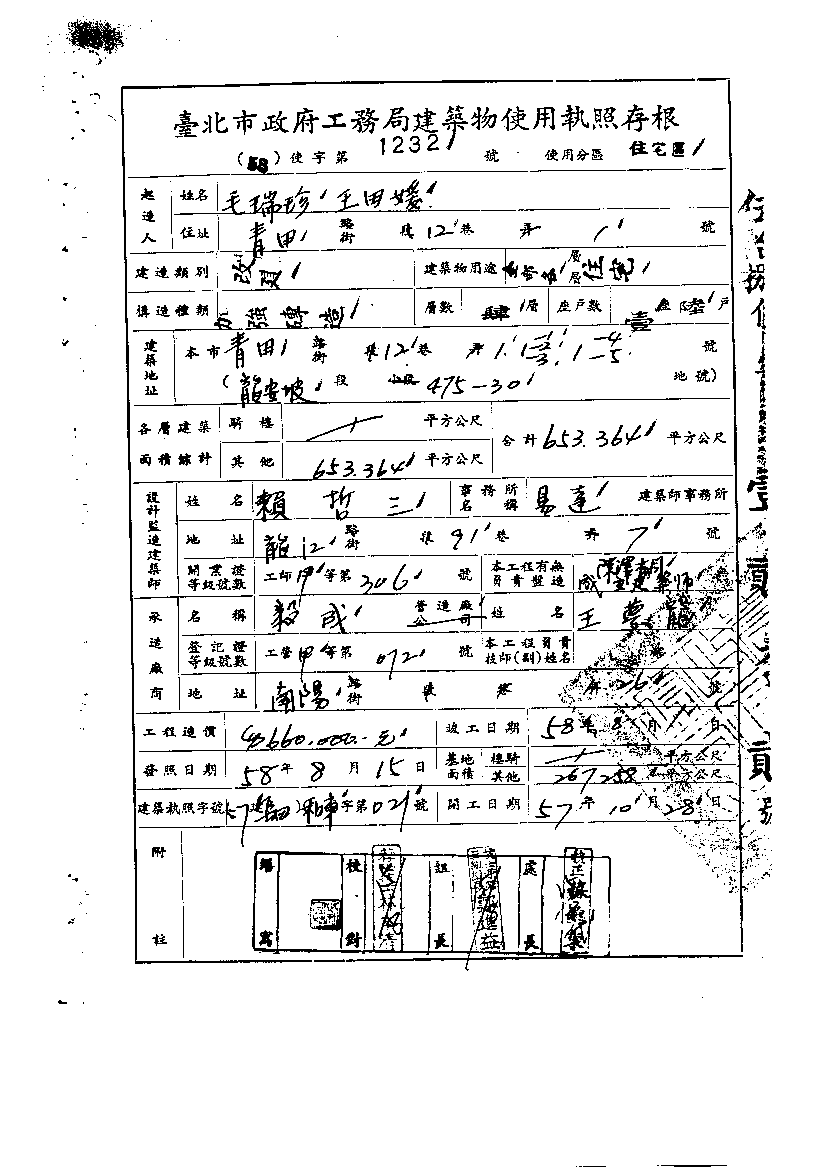 臺北市政府工務局建築物使用執照存根
(58) 使字第 1232 號 使用分區 住宅區
起造人 姓名 毛瑞珍 王田媛
住址 青田 路街 段 12 巷 弄 1 號
建造類別 改建 建築物用途 層層 住宅
構造種類 加強磚造 層數 肆 層 座戶數 壹 座 陸 戶
建築地址 本市 青田 路街 段 12 巷 弄 1. 1-1 1-2 1-3. 1-4 1-5 號
(龍安坡 段 小段 475-30 地號)
各層建築面積總計 騎樓 平方公尺 合計 653.364 平方公尺
其他 653.364 平方公尺
設計監造建築師 姓名 賴哲三 事務所名稱 易達 建築師事務所
地址 龍江 路街 段 91 巷 弄 7 號
開業證等級號數 工師 甲 等第 306 號 本工程有無負責監造
承造廠商 名稱 毅成 營造廠公司 姓名 王夢龍
登記證等級號數 工營 甲 等第 072 號 本工程負責技師(副)姓名
地址 南陽 路街 段 巷 弄 26 號
工程造價 660,000.-元 竣工日期 58 年 8 月 1 日
發照日期 58 年 8 月 15 日 基地面積 樓騎 平方公尺
其他 267.258 平方公尺
建築執照字號 57 字第 021 號 開工日期 57 年 10 月 28 日
附註 繕寫 校對 組長 處長